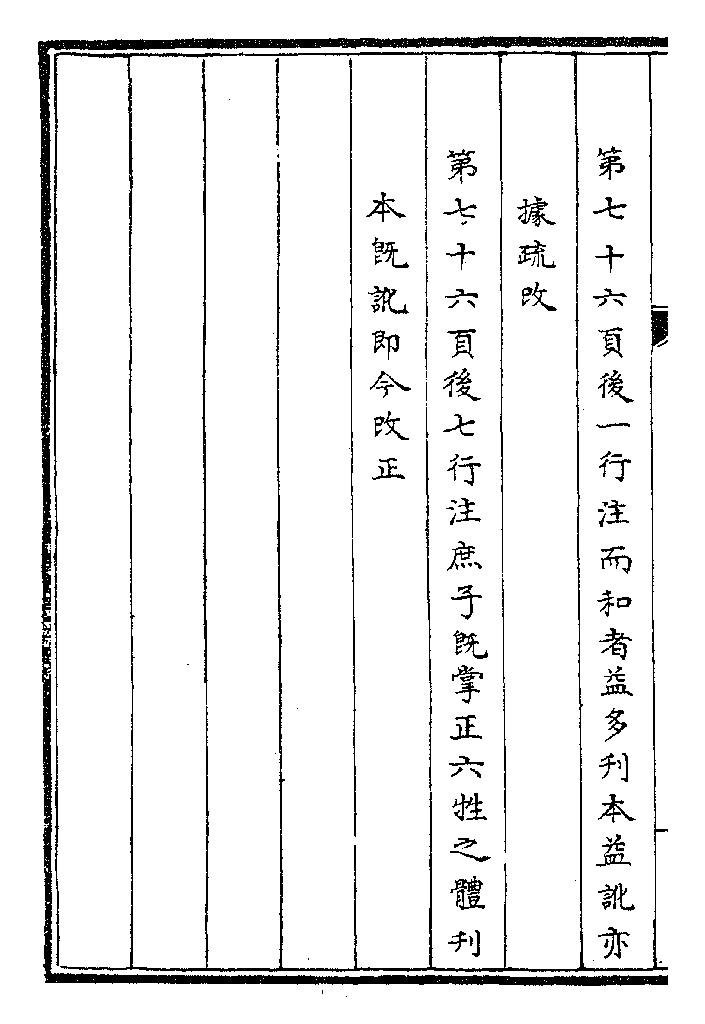 第七十六頁後一行注而和者益多刋本益訛亦
據疏改
第七十六頁後七行注庶子既掌正六牲之體刋
本既訛即今改正